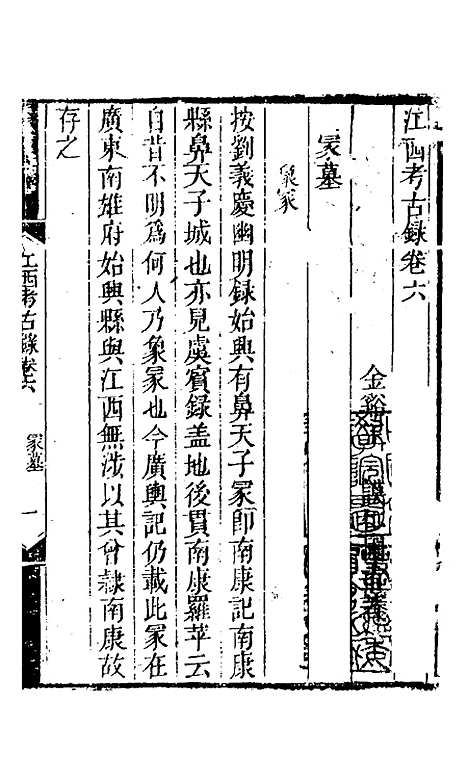 江西考古錄卷六
金谿
冢墓
象冢
按劉義慶幽明錄始興有鼻天子冢卽南康記南康
縣鼻天子城也亦見虞賓錄盖地後貫南康羅苹云
自昔不明爲何人乃象冢也今廣輿記仍載此冢在
廣東南雄府始興縣與江西無涉以其曾隷南康故
存之
江西考古錄卷六
冢墓
一